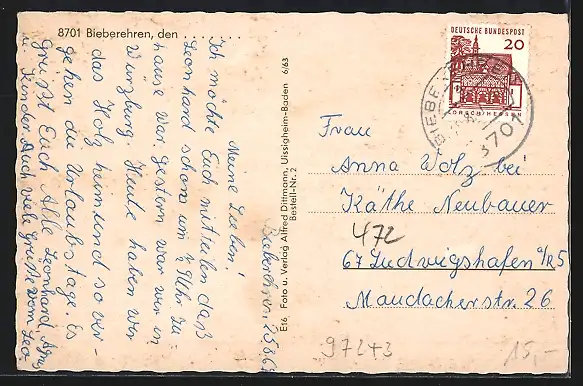 8701 Bieberehren, den . . . . . . . . .
Bieberehren, 25.8.67
Meine Lieben!
Ich möchte Euch mitteilen daß
Leonhard schon um Uhr zu
hause war. gestern war wir in
Würzburg. Heute haben wir
das Holz heim und so ver-
gehen die Urlaubstage. Es
grüßt Euch Alle Leonhard, Agnes
u. Kinder. Auch viele grüße vom Leo
E16 Foto u. Verlag Alfred Dittmann, Uissigheim-Baden 6/63
Bestell-Nr. 2
DEUTSCHE BUNDESPOST
20
LORSCH/HESSEN
8701
Frau
Anna Wolz bei
Käthe Neubauer
472
67 Ludwigshafen a/R 5
Maudacherstr. 26
97243
15,-